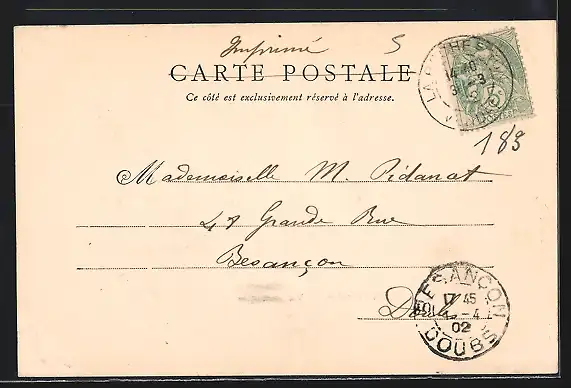 Imprimé 5
CARTE POSTALE
Ce côté est exclusivement réservé à l'adresse.
183
Mademoiselle M. Pidanat
47 Grande Rue
Besançon
Doubs
BESANÇON
17 45
-4
02
DOUBS